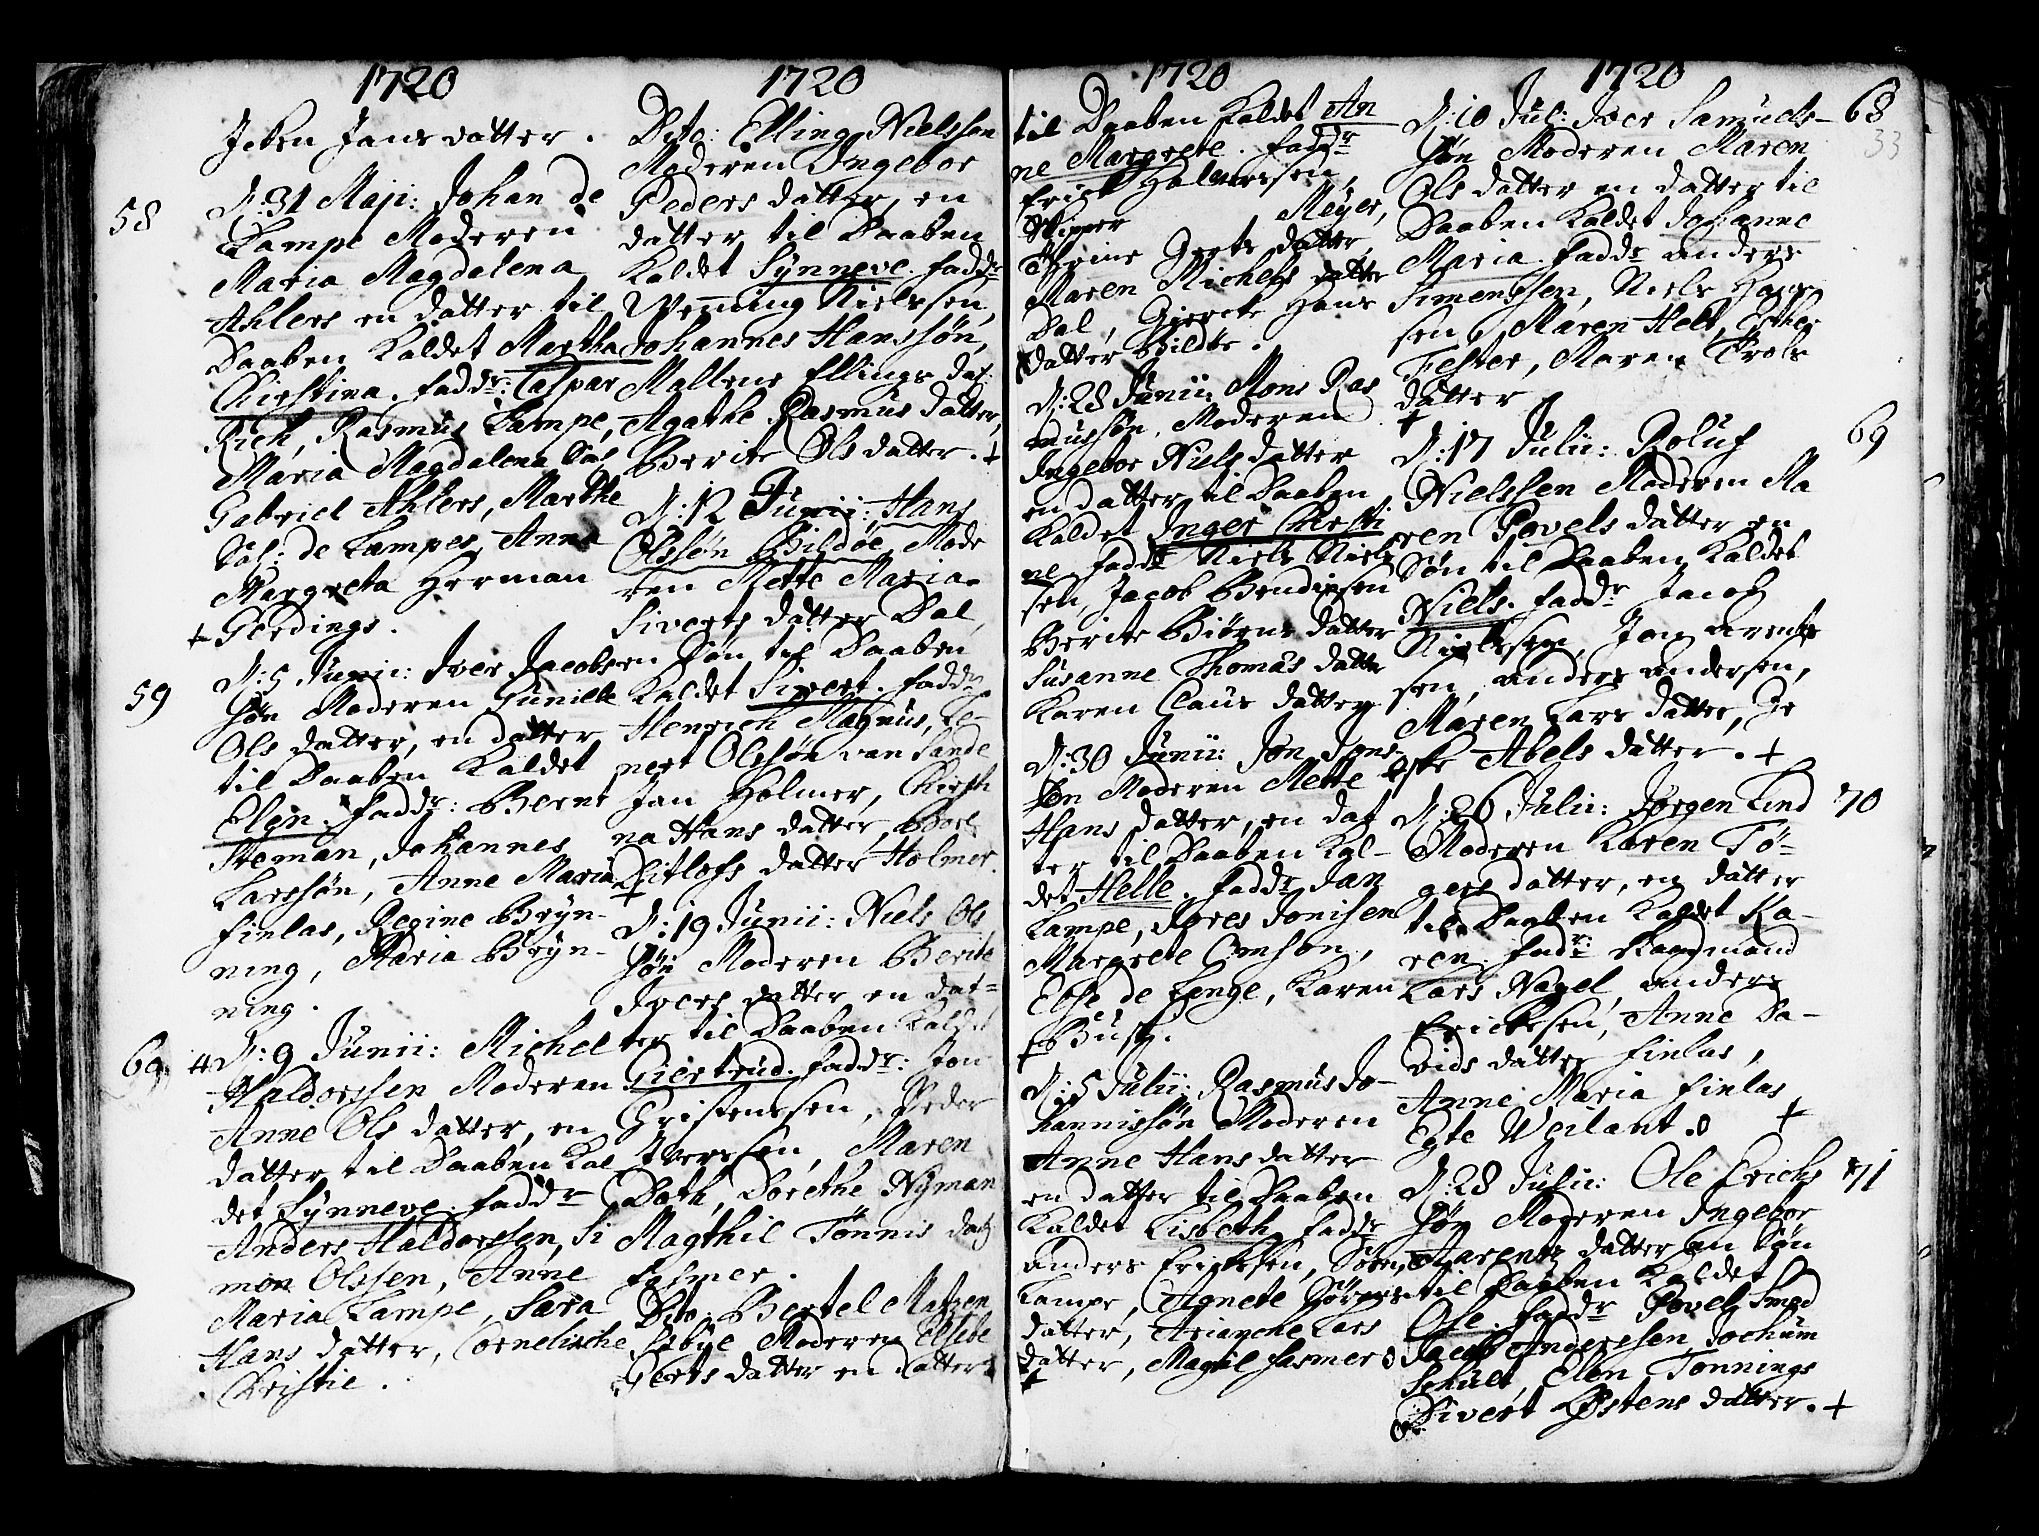 1720
Jeben Jans datter .
58
D: 31 Maji: Johan de
Lampe Moderen
Maria Magdalena
Ahlers en datter til
Daaben kaldet Martha
Christina. fadd:r Caspar
Rich, Rasmus Lampe,
Maria Magdalena Sal
Gabriel Ahlers, Marthe
Sal: de Lampes, Anna
Margreta Herman
+ Gerdings .
59
D: 5 Junii: Iver Jacobs
søn Moderen Gunille
Ols datter, en datter
til Daaben kaldet
Elen. fadd:r Bernt
Steman, Johannes
Larssøn, Anne Maria
finlas, Regine Bryn-
ning, Maria Bryn-
ning .
60
D: 9 Junii: Michel
Haldorssen Moderen
Anne Ols datter, en
datter til Daaben kal
det Synneve. fadd:r
Anders Haldorssen, Si
mon Olssen, Anne
Maria Lampe, Sara
Hans datter, Cornelische
Kristie .
1720
Dito: Elling Nielsson
Moderen Ingebor
Peders datter, en
datter til Daaben
kaldet Synneve. fadd:r
Wenning Nielssen,
Johannes Hanssøn,
Mallene Ellings dat:
Agathe Rasmus datter,
Berite Ols datter. +
D: 12 Junii: Hans
Olssøn Bildøe Mode
ren Mette Maria
Siverts datter Dal,
en Søn til Daaben
kaldet Sivert. fadd:r
Henrich Magnus, Le-
nert Olssøn van Sande
Jan Holmer, Christi
na Hans datter, Bor
Ditlofs datter Holmer.
+
D: 19 Junii: Niels Ols
søn Moderen Berite
Ivers datter en dat=
ter til Daaben kaldet
Giertrud. fadd:r: Jon
Christenssen, Peder
Iverssen, Maren
Both, Dorethe Nyman
Magthil Tønnis dat
fasmer .
Dito: Bertel Matzen
Sebye Moderen Elsebe
Gerts datter en datter
1720
til Daaben kaldet An
ne Margrete. fadd:r
Erick Halvorssen,
Skipper Meyer,
Thrine Gerts datter,
Maren Michels datter
Dal, Gjerete Hans
datter Bildøe.
D: 23 Junii: Mons Ras
mussøn, Moderen
Ingebor Niels datter
en datter til Daaben
kaldet Inger Christi
ne fadd:r Niels Niels
sen, Jacob Bendixsen
Berite Biørns datter
Susanne Thomas datter
Karen Claus datter
D: 30 Junii: Jon Jons-
søn Moderen Mette
Hans datter, en dat
ter til Daaben kal-
det Helle. fadd:r Jan
Lampe, Jores Jonisen
Margrete Omson,
Else de Lenge, Karen
Busk.
+
D: 5 Julii: Rasmus Jo-
hannissøn Moderen
Anne Hans datter
en datter til Daaben
kaldet Lisbeth. fadd:r
anders Erichssen, Søren
Lampe, Agnete Sørens
datter, Arianche Lars
datter, Magtil fasmer
+
1720
68
33
D: 10 Jul: Iver Samuels-
søn Moderen Maren
Ols datter en datter til
Daaben kaldet Johanne
Maria. fadd:r anders
Simenssen, Niels Hans
sen, Maren Helt, Esther
Fester, Maren Trols
datter
+
69
D: 17 Julii: Roluf
Nielssen Moderen Ma
ren Povels datter en
Søn til Daaben kaldet
Niels. fadd:r Jacob
Nielssen, Jon Arents
sen, anders andersen,
Maren Lars datter, Je
ske Abels datter. +
70
D: 26 Julii: Jørgen Lind
Moderen Karen Tø=
gers datter, en datter
til Daaben kaldet Ka-
ren. fadd:r: Raadmand
Lars Nagel, anders
Erickssen, Anne Da-
vids datter finlas,
Anne Maria finlas
Egte Weilant. +
71
D: 28 Julii: Ole Erichs
søn Moderen Ingebor
Aarents datter en Søn
til Daaben kaldet
Ole. fadd:r Povel Smed
Jacob Anderssen, Jochum
Schult, Elen Tønnings
Sivert Østens datter. +